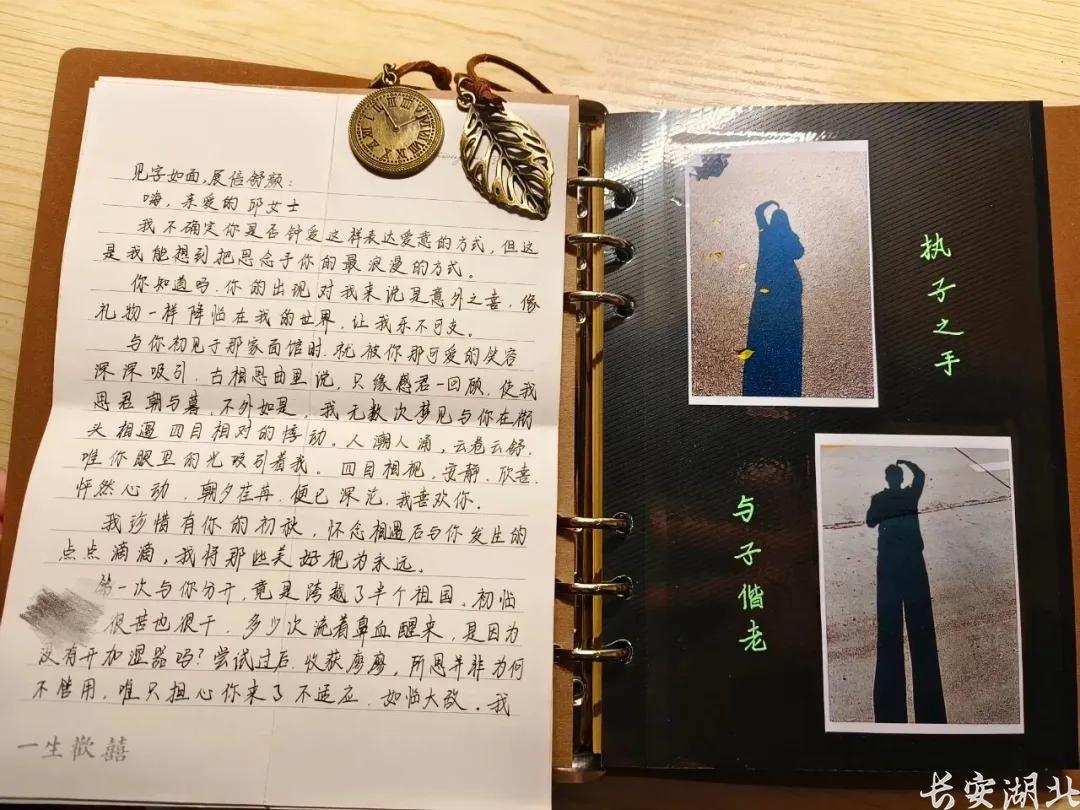 见字如面,展信舒颜:
嗨,亲爱的邱女士
我不确定你是否钟爱这样表达爱意的方式,但这
是我能想到把思念予你的最浪漫的方式。
你知道吗,你的出现对我来说是意外之喜,像
礼物一样降临在我的世界,让我乐不可支。
与你初见于那家面馆时,就被你那可爱的笑容
深深吸引,古相思曲里说,只缘感君一回顾,使我
思君朝与暮,不外如是,我无数次梦见与你在街
头相遇四目相对的悸动。人潮人涌,云卷云舒,
唯你眼里的光吸引着我。四目相视,安静,欣喜,
怦然心动,朝夕荏苒,便已深沦,我喜欢你。
我珍惜有你的初秋,怀念相遇后与你发生的
点点滴滴,我将那些美好视为永远。
第一次与你分开,竟是跨越了半个祖国。初临
很苦也很干,多少次流着鼻血醒来,是因为
没有开加湿器吗?尝试过后,收获寥寥,所思并非为何
不管用,唯只担心你来了不适应,如临大敌。我
一生歡囍
执子之手
与子偕老
长安湖北